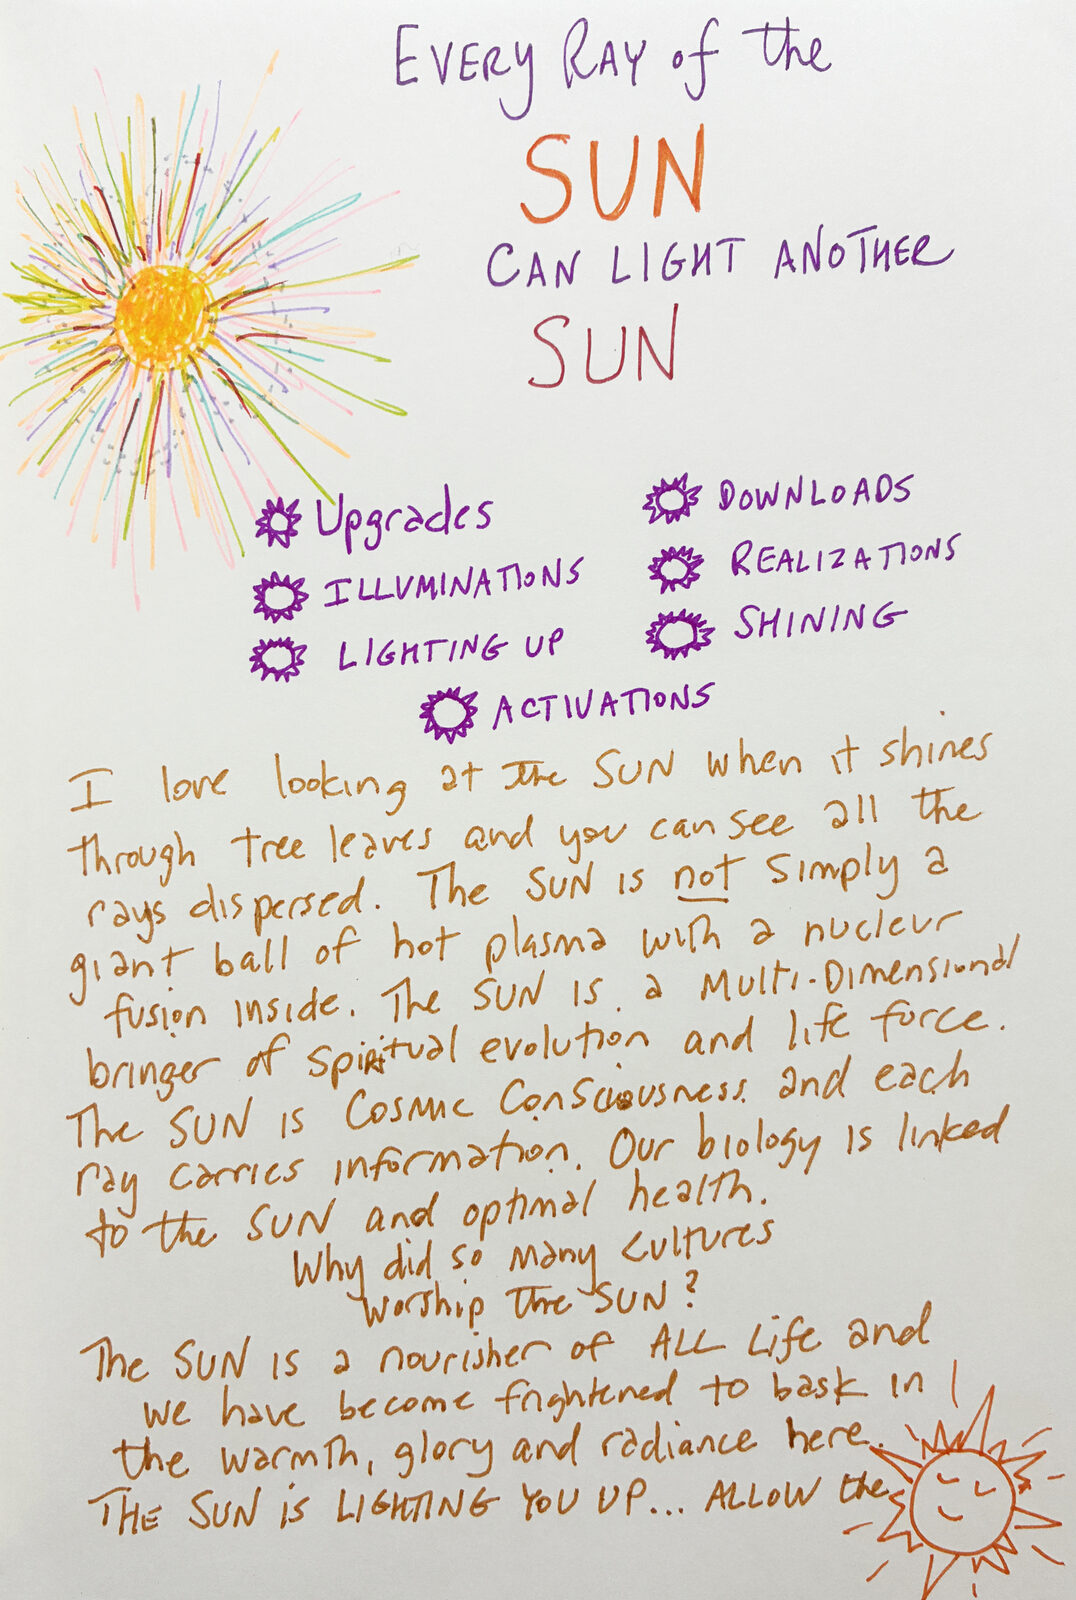 EVERY RAY of the
SUN
CAN LIGHT ANOTHER
SUN
Upgrades
DOWNLOADS
ILLUMINATIONS
REALIZATIONS
LIGHTING UP
SHINING
ACTIVATIONS
I love looking at the SUN when it shines
through tree leaves and you can see all the
rays dispersed. The SUN is not simply a
giant ball of hot plasma with a nuclear
fusion inside. The SUN is a Multi-Dimensional
bringer of spiritual evolution and life force.
The SUN is Cosmic Consciousness and each
ray carries information. Our biology is linked
to the SUN and optimal health.
Why did so many cultures
worship the SUN?
The SUN is a nourisher of ALL Life and
we have become frightened to bask in
the warmth, glory and radiance here.
THE SUN is LIGHTING YOU UP... ALLOW the